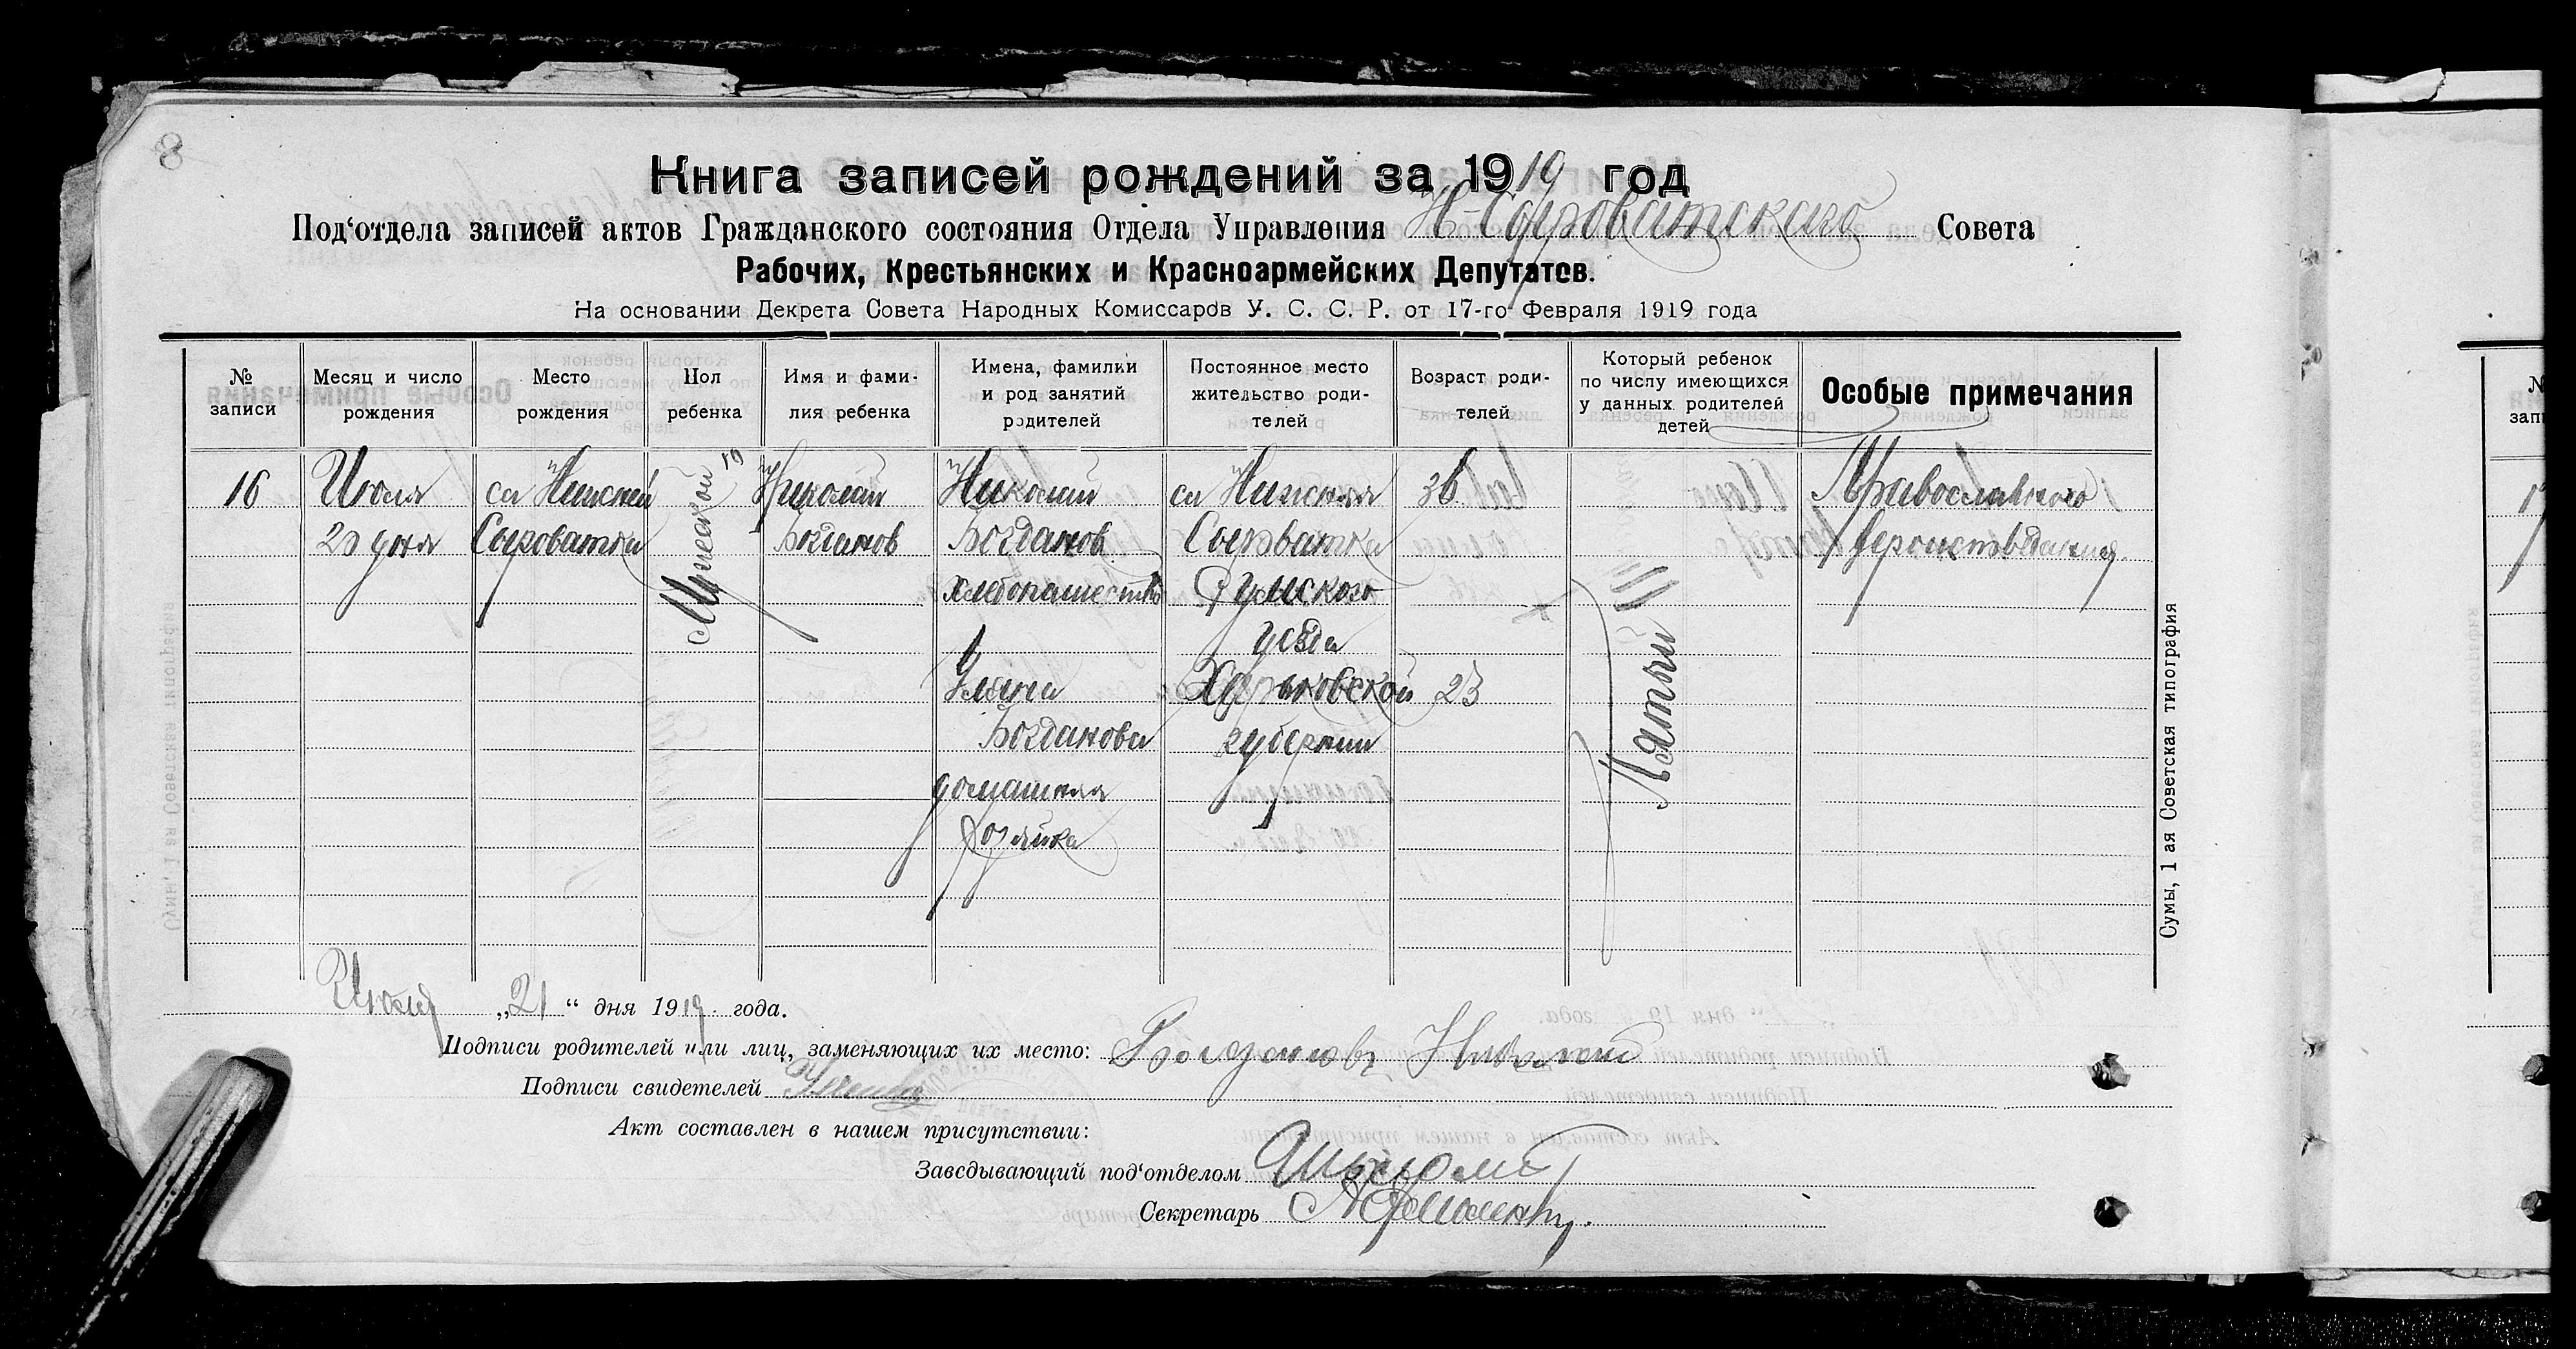 8
Книга записей рождений за 1919 год
Под‘отдела записей актов Гражданского состояния Отдела Управления Н-Сыроватскаго Совета
Рабочих, Крестьянских и Красноармейских Депутатов.
На основании Декрета Совета Народных Комиссаров У. С. С. Р. от 17-го Февраля 1919 года
№ записи
Месяц и число рождения
Место рождения
Пол ребенка
Имя и фами-
лия ребенка
Имена, фамилии
и род занятий
родителей
Постоянное место
жительство роди-
телей
Возраст роди-
телей
Который ребенок
по числу имеющихся
у данных родителей
детей
Особые примечания
16
Июля
20 дня
сл Нижней
Сыроватка
Мужской
Николай
Богданов
Николай
Богданов
хлебопашество
Ульяна
Богданова
домашняя
хозяйка
сл Нижняя
Сыроватка
Сумского
уезда
Харьковской
губернии
36
23
Пятый
Православного
вероисповедания
Сумы, 1 ая Советская типография
Июля „21“ дня 1919 года.
Подписи родителей или лиц, заменяющих их место: Богдановъ Николай
Подписи свидетелей
Акт составлен в нашем присутствии:
Заведывающий под‘отделом
Секретарь